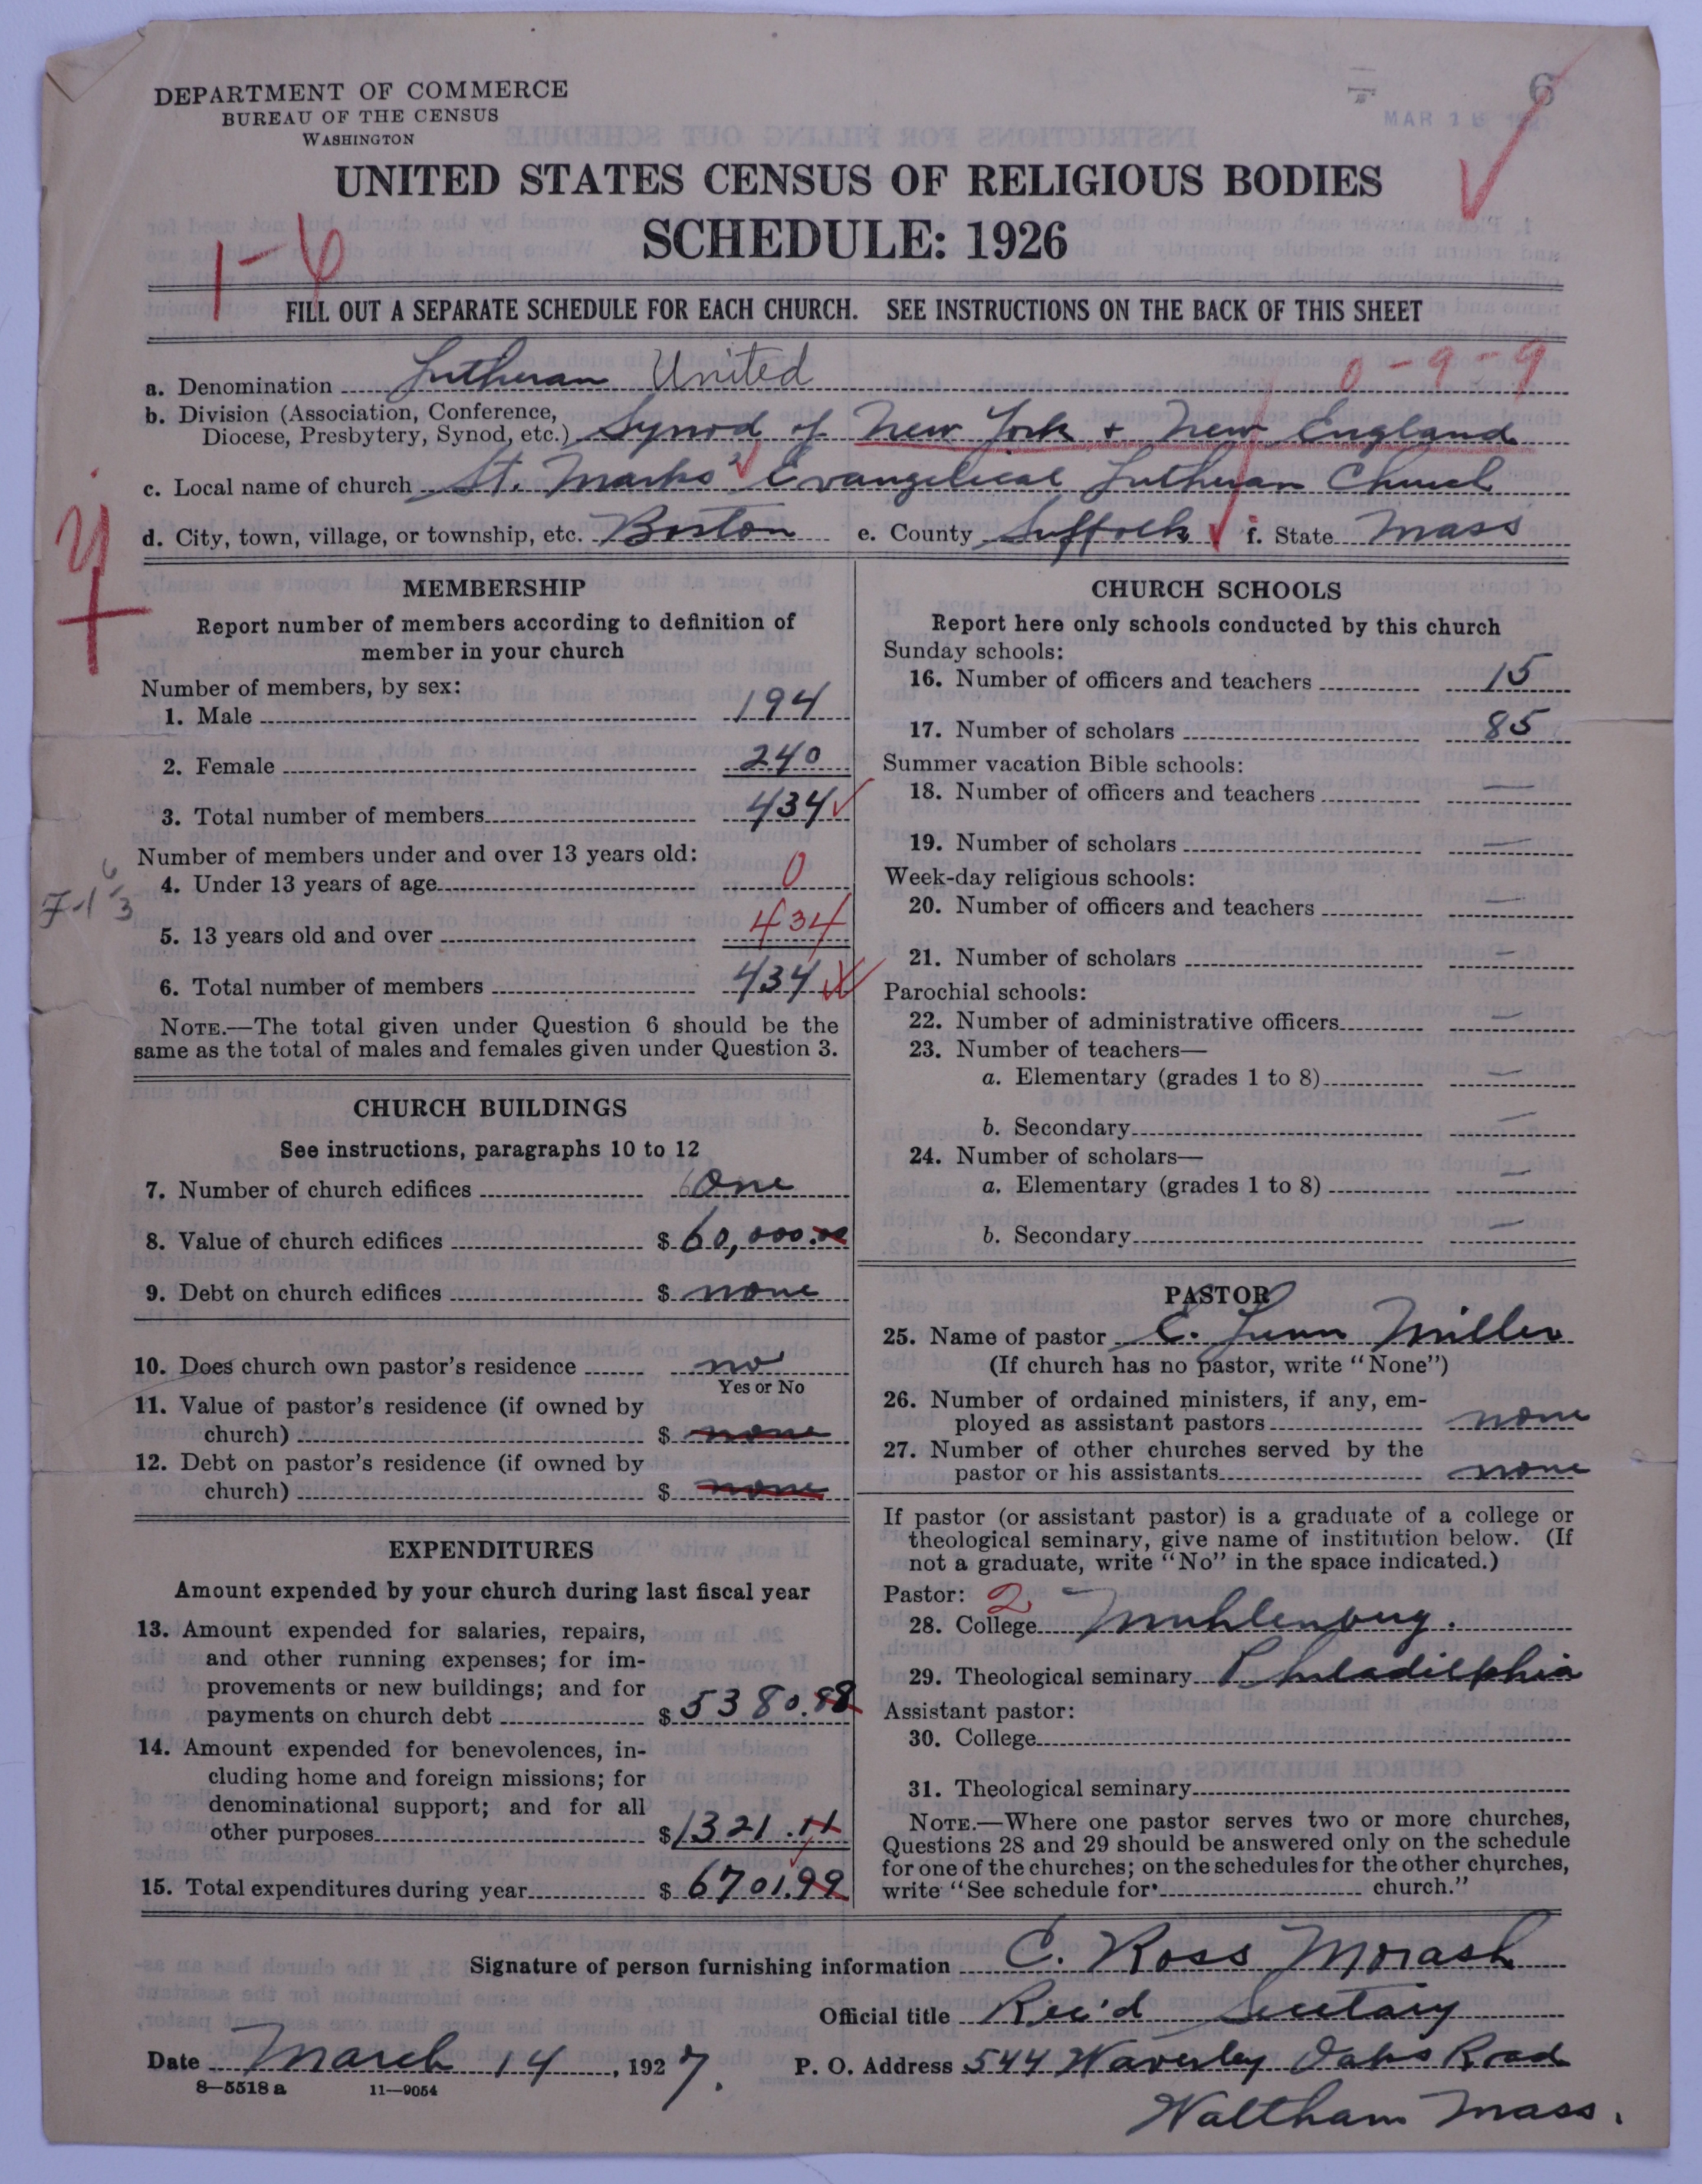 DEPARTMENT OF COMMERCE
BUREAU OF THE CENSUS
WASHINGTON
6
MAR 1
UNITED STATES CENSUS OF RELIGIOUS BODIES
SCHEDULE: 1926
1-6
FILL OUT A SEPARATE SCHEDULE FOR EACH CHURCH. SEE INSTRUCTIONS ON THE BACK OF THIS SHEET
0-9-9
a. Denomination Lutheran United
b. Division (Association, Conference,
Diocese, Presbytery, Synod, etc.) Synod of New York + New England
c. Local name of church St. Marks' Evangelical Lutheran Church
d. City, town, village, or township, etc. Boston e. County Suffolk f. State Mass
MEMBERSHIP
Report number of members according to definition of
member in your church
Number of members, by sex:
1. Male 194
2. Female 240
3. Total number of members 434
Number of members under and over 13 years old:
4. Under 13 years of age 0
5. 13 years old and over 434
6. Total number of members 434
NOTE.—The total given under Question 6 should be the
same as the total of males and females given under Question 3.
CHURCH BUILDINGS
See instructions, paragraphs 10 to 12
7. Number of church edifices One
8. Value of church edifices $ 60,000.00
9. Debt on church edifices $ none
10. Does church own pastor's residence no
Yes or No
11. Value of pastor's residence (if owned by
church) $ none
12. Debt on pastor's residence (if owned by
church) $ none
EXPENDITURES
Amount expended by your church during last fiscal year
13. Amount expended for salaries, repairs,
and other running expenses; for im-
provements or new buildings; and for
payments on church debt $ 5380.88
14. Amount expended for benevolences, in-
cluding home and foreign missions; for
denominational support; and for all
other purposes $ 1321.11
15. Total expenditures during year $ 6701.99
CHURCH SCHOOLS
Report here only schools conducted by this church
Sunday schools:
16. Number of officers and teachers 15
17. Number of scholars 85
Summer vacation Bible schools:
18. Number of officers and teachers —
19. Number of scholars —
Week-day religious schools:
20. Number of officers and teachers —
21. Number of scholars —
Parochial schools:
22. Number of administrative officers —
23. Number of teachers—
a. Elementary (grades 1 to 8) —
b. Secondary —
24. Number of scholars—
a. Elementary (grades 1 to 8) —
b. Secondary —
PASTOR
25. Name of pastor C. Miller
(If church has no pastor, write "None")
26. Number of ordained ministers, if any, em-
ployed as assistant pastors none
27. Number of other churches served by the
pastor or his assistants none
If pastor (or assistant pastor) is a graduate of a college or
theological seminary, give name of institution below. (If
not a graduate, write "No" in the space indicated.)
Pastor: 2
28. College Muhlenburg.
29. Theological seminary Philadelphia
Assistant pastor:
30. College
31. Theological seminary
NOTE.—Where one pastor serves two or more churches,
Questions 28 and 29 should be answered only on the schedule
for one of the churches; on the schedules for the other churches,
write "See schedule for church."
Signature of person furnishing information C. Ross Morash
Official title Rec'd Secretary
Date March 14, 1927. P. O. Address 544 Waverley Oaks Road
8—5518 a 11—9054
Waltham Mass.